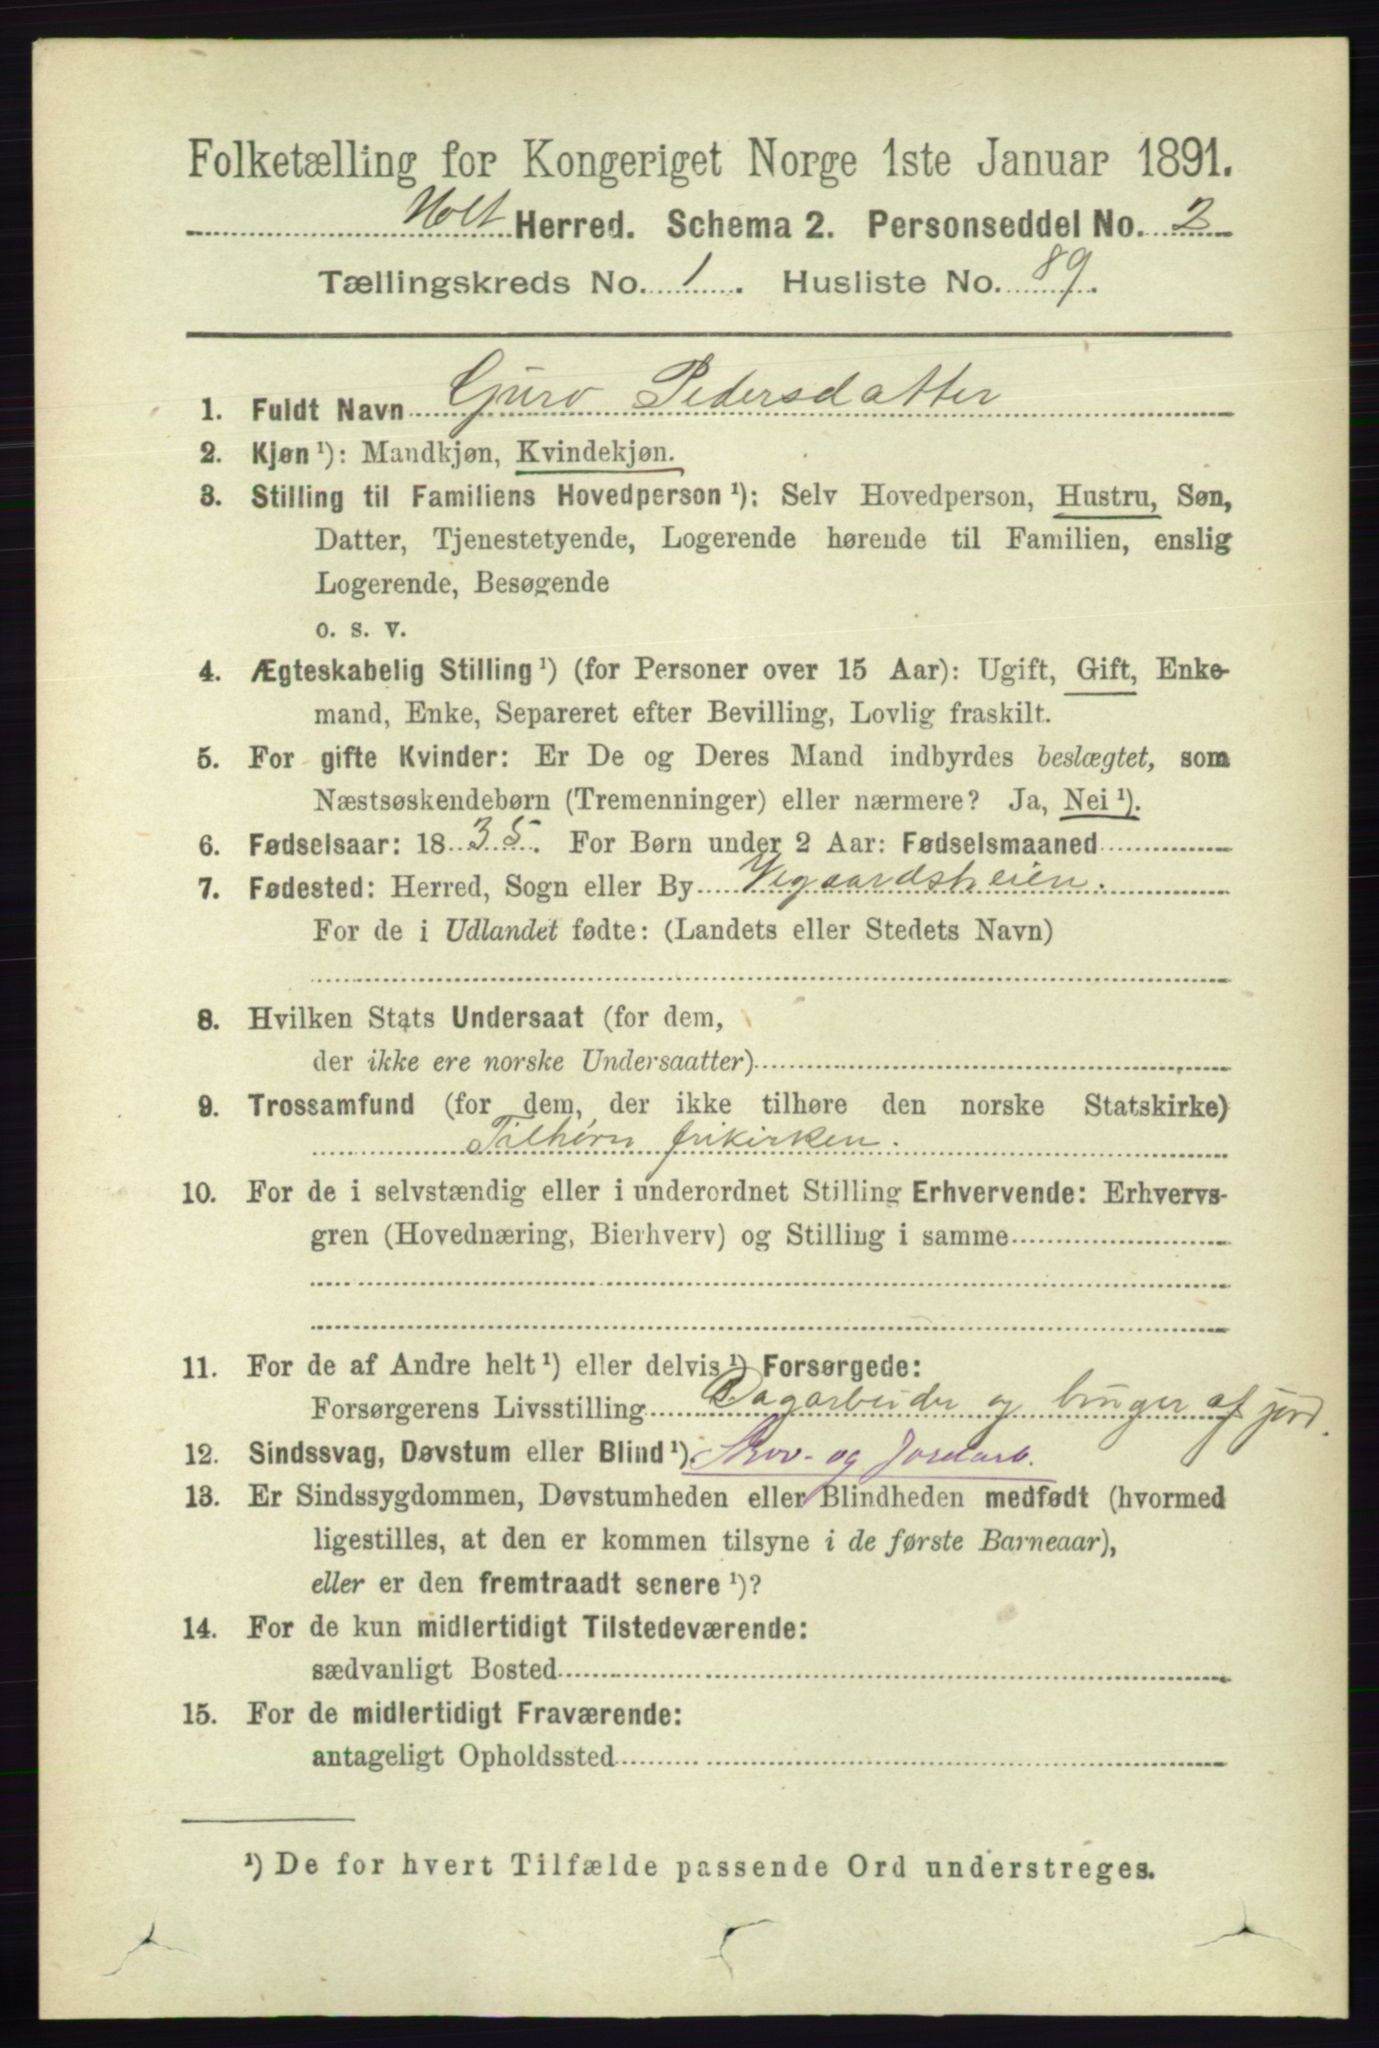 Folketælling for Kongeriget Norge 1ste Januar 1891.
Holt Herred. Schema 2. Personseddel No. 2
Tællingskreds No. 1. Husliste No. 89.
1. Fuldt Navn Guro Pedersdatter
2. Kjøn ¹): Mandkjøn, Kvindekjøn.
3. Stilling til Familiens Hovedperson ¹): Selv Hovedperson, Hustru, Søn,
Datter, Tjenestetyende, Logerende hørende til Familien, enslig
Logerende, Besøgende
o. s. v.
4. Ægteskabelig Stilling ¹) (for Personer over 15 Aar): Ugift, Gift, Enke-
mand, Enke, Separeret efter Bevilling, Lovlig fraskilt.
5. For gifte Kvinder: Er De og Deres Mand indbyrdes beslægtet, som
Næstsøskendebørn (Tremenninger) eller nærmere? Ja, Nei ¹).
6. Fødselsaar: 1835. For Børn under 2 Aar: Fødselsmaaned
7. Fødested: Herred, Sogn eller By Vegaardsheien.
For de i Udlandet fødte: (Landets eller Stedets Navn)
8. Hvilken Stats Undersaat (for dem,
der ikke ere norske Undersaatter)
9. Trossamfund (for dem, der ikke tilhøre den norske Statskirke)
Tilhører frikirken.
10. For de i selvstændig eller i underordnet Stilling Erhvervende: Erhvervs-
gren (Hovednæring, Bierhverv) og Stilling i samme
11. For de af Andre helt ¹) eller delvis ¹) Forsørgede:
Forsørgerens Livsstilling Dagarbeider og bruger af jord.
12. Sindssvag, Døvstum eller Blind ¹). Skov- og Jordarb.
13. Er Sindssygdommen, Døvstumheden eller Blindheden medfødt (hvormed
ligestilles, at den er kommen tilsyne i de første Barneaar),
eller er den fremtraadt senere ¹)?
14. For de kun midlertidigt Tilstedeværende:
sædvanligt Bosted
15. For de midlertidigt Fraværende:
antageligt Opholdssted
¹) De for hvert Tilfælde passende Ord understreges.